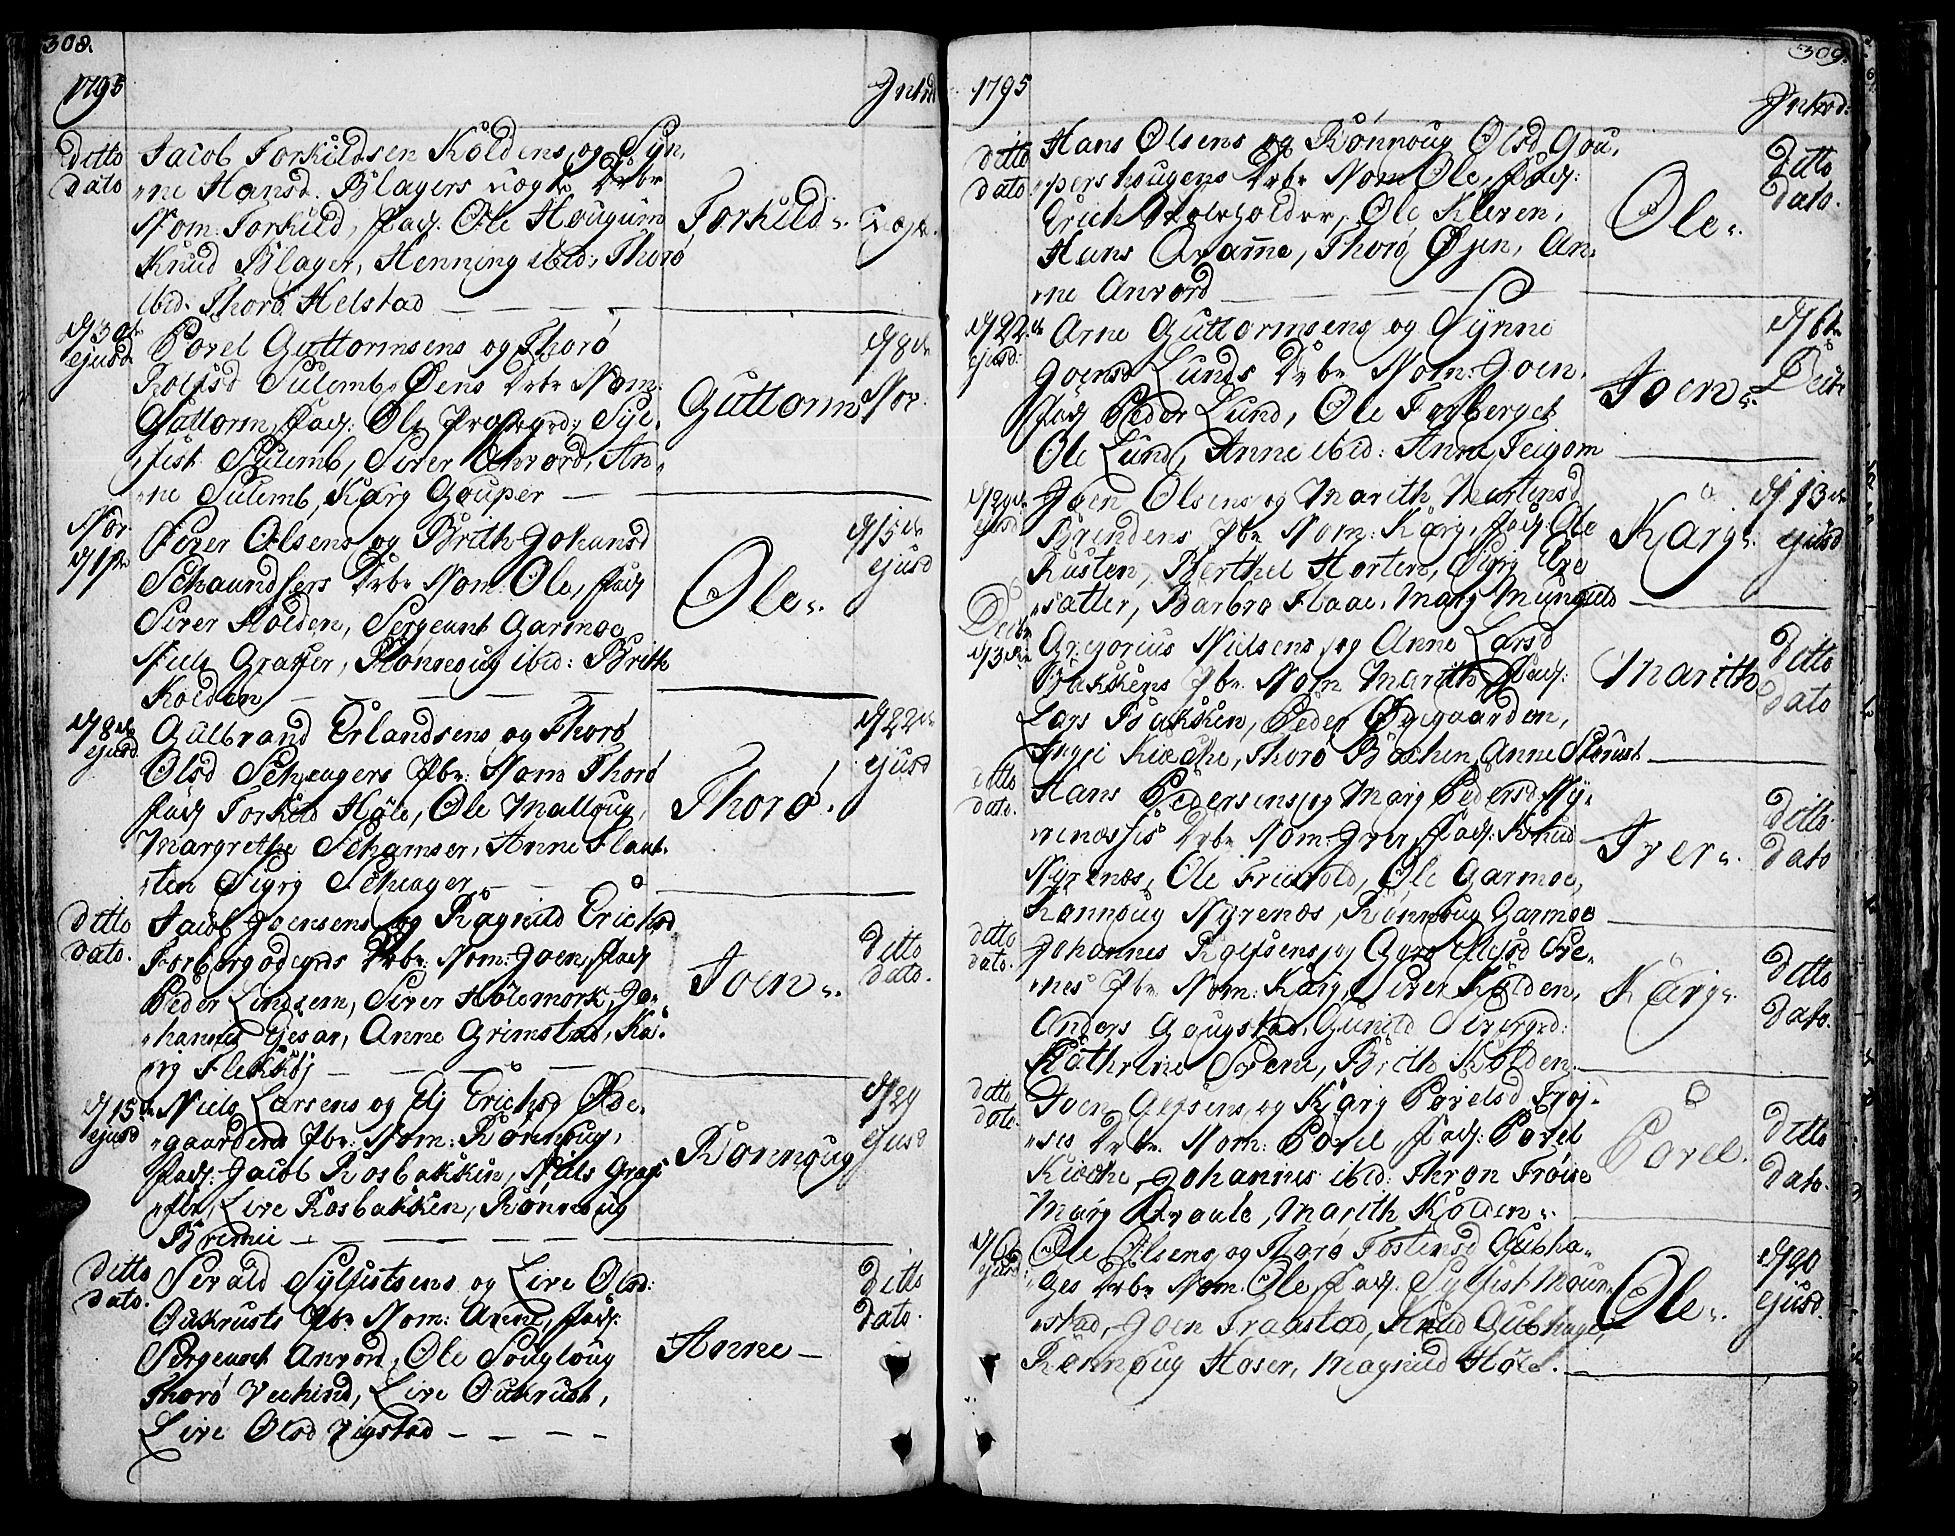 308.
1795
Introd
Ditto dato
Jacob Torkildsen Koldens og Syn,
"ne Hansd. Blagers uægte Drbr
Nom: Torkild, Fad: Ole Hougum
Knud Blager, Henning ibid: Thorø
ibid. Thorø Helstad — — —
Torkild ".
uægt.
d/30te ejusd
Povel Guttormsens og Thorø
Rolfsd Sulemb: Øens Drbr Nom:
Guttorm, Fad: Ole Præstgrd: Syl,
"fist Sulemb, Siver Anvord, An"
"ne Sulemb, Karg Gouper —
Guttorm
d/8de Nov.
Nov d/1te
Siver Olsens og Brith Johansd
Drbr Nom: Ole, Fad
Siver Kolden, Sergeant Garmoe
Niels Graffer, Rønnoug ibid: Brith
Kolden — — —
Ole ".
d/15de ejusd
d/8de ejusd
Gulbrand Erlandsens og Thorø
Olsd Scheagers Pbr: Nom Thorø
Fad Torkild Høle, Ole Malloug,
Margrethe Schamser, Anne Flaat"
"ten Sigrj Scheager — — —
Thorø ".
d/22de ejusd
Ditto dato.
Jacob Joensens og Ragnild Erichsd
Forbergodegrds Drbr. Nom: Joen, Fad
Peder Lindsem, Siver Holemork, Jo"
"hannes Gjesar, Anne Grimstad, Ka"
"rij Flekkøj — — —
Joen ".
Ditto dato.
d/15de ejusd
Niels Larsens og Elj Erichsd Øde"
"gaardens Pbr: Nom: Rønnoug,
Fad: Jacob Rosbakken, Niels Graf"
"fer, Live Rosbakken, Rønnoug
Bremie — — —
Rønnoug
d/29 ejusd
Ditto dato.
Sevald Sylfistsens og Live Olsd:
Oukrusts Pbr Nom: Anne, Fad:
Sergeant Anvord, Ole Sougloug
Thorø Veehind, Live Oukrust,
Live Olsd Vigstad — — —
Anne —
Ditto Dato.
309.
1795
Introd:
Ditto dato.
Hans Olsens og Rønnoug Olsd Gou"
"pershougens Drbr Nom: Ole, Fad:
Erich Ole Kleven,
Hans Qvamme, Thorø Øjen, An"
"ne Anvord —
Ole ".
Ditto dato.
d/22de ejusd:
Arne Guttormsens og Synne
Joensd Lunds Drbr Nom: Joen,
Fad Peder Lund, Ole Forberget
Ole Lund, Anne ibid: Anne Teigom —
Joen ".
d/6te Decbr
d/29de ejusd
Joen Olsens og Marith Mortensd
Brendens Pbr Nom: Karg, Fad: Ole
Rusten, Berthel Horten, Sigrj Eve
"satter, Barbra Flaae, Marg Mungild —
Karg ".
d/13de ejusd
Decbr d/3de
Gregorius Nielsens og Anne Larsd
Bakkens Pbr. Nom Marith, Fad:
Lars Bakken, Peder Ødegaarden,
Kierke, Thorø Bakken, Anne Skrust —
Marith
Ditto dato
ditto dato.
Hans Pedersens og Marg Pedersd Ny"
"renæsses Drbr Nom: Iver, Fad: Knud
Nyrenæs, Ole Friisvold, Ole Garmoe,
Rønnoug Nyrenæs, Rønnoug Garmoe —
Iver ".
Ditto dato
ditto dato.
Johannes Rolfsens og Gyro Olufsd Sve"
"nes Pbr Nom: Karg, Siver Kolden,
Anders Gougstad, Gunild Sivergrd:
Kathrine Svene, Brith Kolden —
Karg ".
Ditto dato.
ditto dato.
Joen Alfsens og Karg Povelsd Frøj"
"ses Drbr Nom: Povel, Fad: Povel
Kierke, Johannes ibid: Thron Frøise
Marg Qvaale, Marith Kolden ".
Povel.
Ditto dato.
d/6te ejusd:
Ole Olsens og Thorø Tostensd Gubha"
"ges Drbr Nom: Ole, Fad: Sylfist Moun"
"stad, Joen Graastad, Knud Gubhage,
Rønnoug Hoser, Magnild Høle. —
Ole ".
d/20 ejusd.